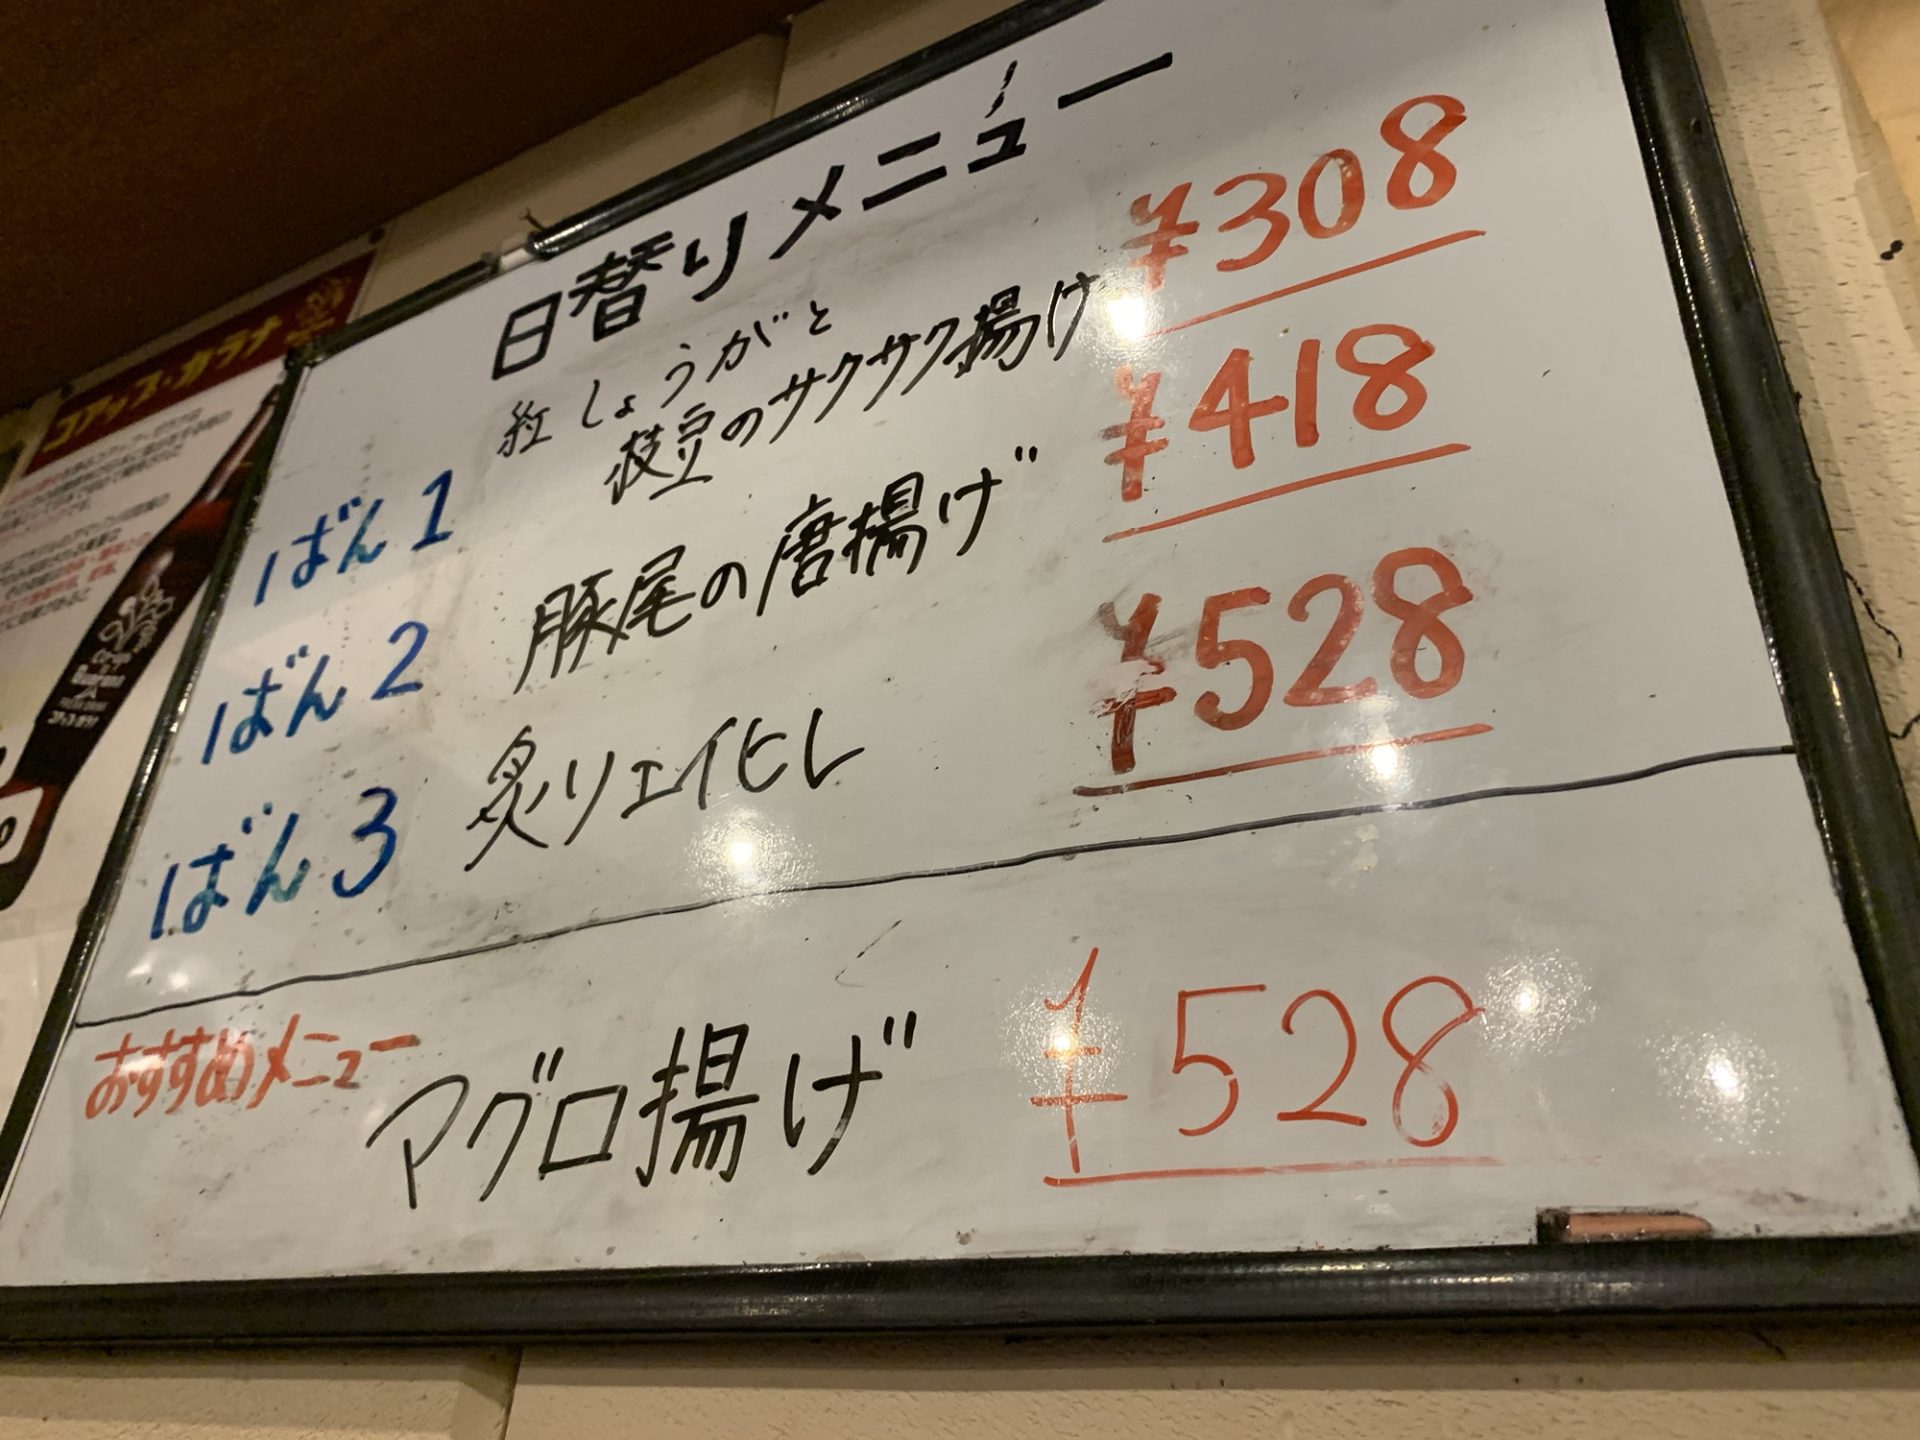 日替りメニュー
ばん1 紅しょうがと
枝豆のサクサク揚げ ¥308
ばん2 豚尾の唐揚げ ¥418
ばん3 炙りエイヒレ ¥528
おすすめメニュー
マグロ揚げ ¥528
コアップ・ガラナ